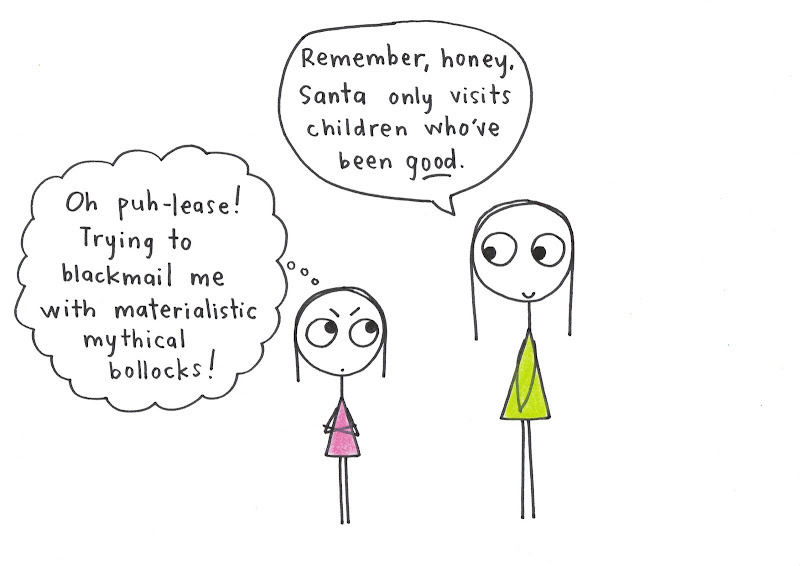 Remember, honey.
Santa only visits
children who've
been good.
Oh puh-lease!
Trying to
blackmail me
with materialistic
mythical
bollocks!